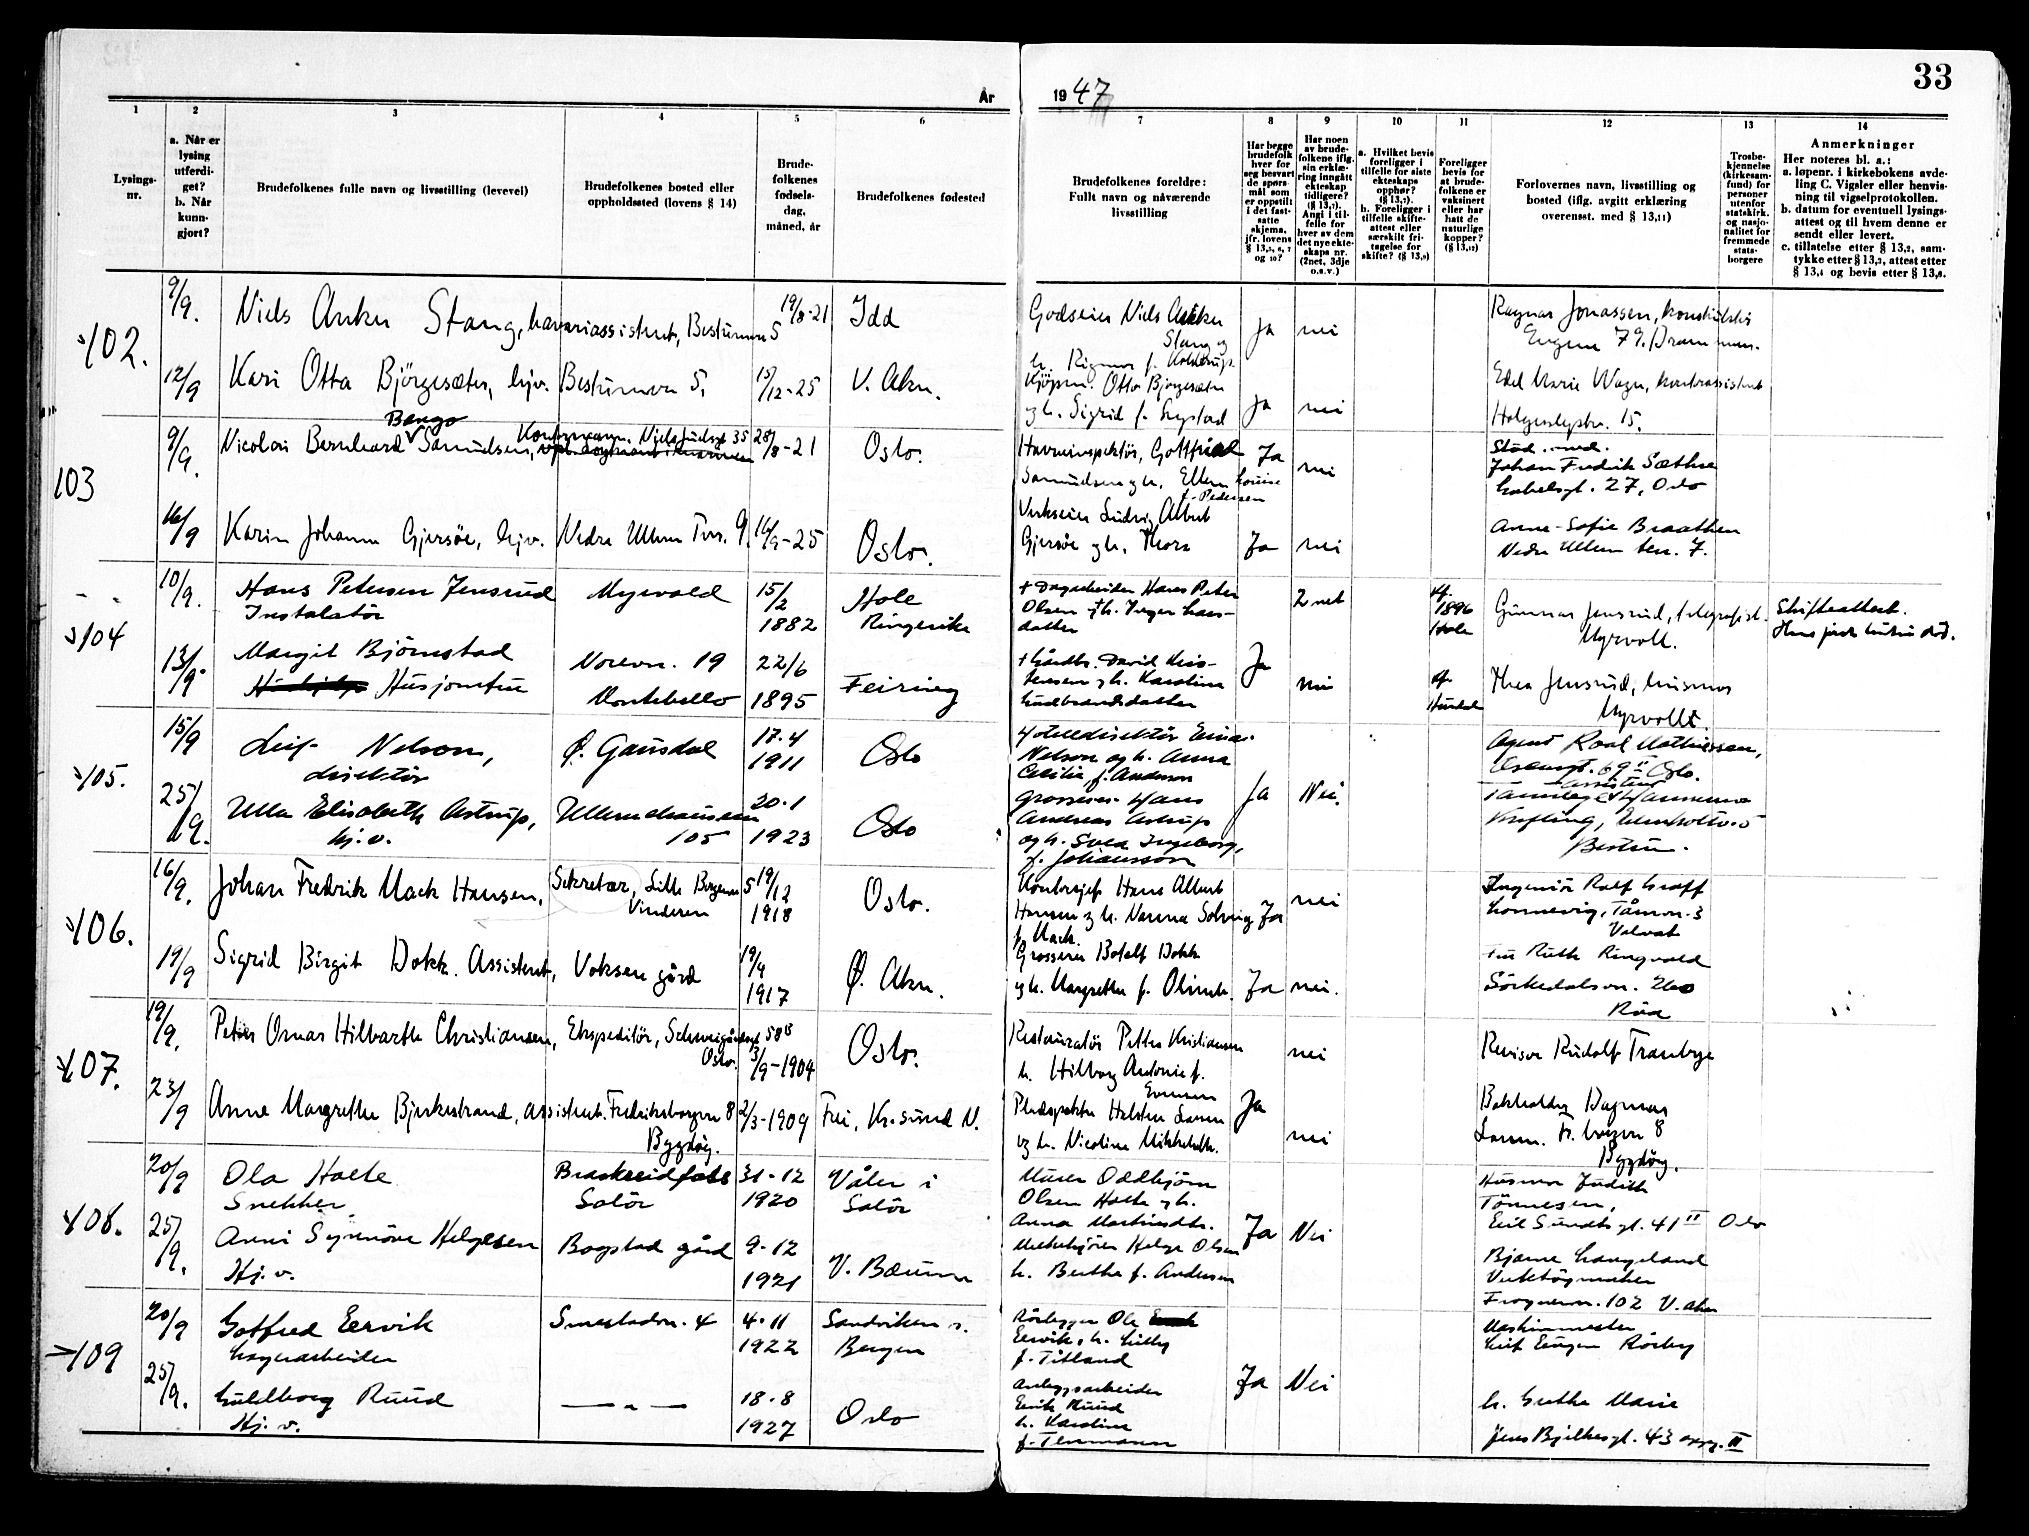 33
År
19 47
1
2
3
4
5
6
7
8
9
10
11
12
13
14
Lysings-
nr.
a. Når er
lysing
utferdi-
get?
b. Når
kunn-
gjort?
Brudefolkenes fulle navn og livsstilling (levevei)
Brudefolkenes bosted eller
oppholdssted (lovens § 14)
Brude-
folkenes
fødsels-
dag,
måned, år
Brudefolkenes fødested
Brudefolkenes foreldre:
Fullt navn og nåværende
livsstilling
Har begge
brudefolk
hver for
seg besvart
de spørs-
mål som
er oppstilt
i det fast-
satte
skjema,
jfr. lovens
og 10?
Har noen
av brude-
folkene iflg.
sin erklæ-
ring inngått
ekteskap
tidligere?
(§ 13,7).
Angi i til-
felle for
hver av dem
det nye ekte-
skaps nr.
(2net, 3dje
o.s.v.)
a. Hvilket bevis
foreligger i
tilfelle for siste
ekteskaps
opphør?
(§ 13,7).
b. Foreligger i
tilfelle skifte-
attest eller
særskilt fri-
tagelse for
skifte? (§ 13,9)
Foreligger
bevis for
at brude-
folkene er
vaksinert
eller har
hatt de
naturlige
kopper?
(§ 13,12)
Forlovernes navn, livsstilling og
bosted (iflg. avgitt erklæring
overensst. med § 13,11)
Trosbe-
kjennelse
(kirkesam-
fund) for
personer
utenfor
statskirk.
og nasjo-
nalitet for
fremmede
stats-
borgere
Anmerkninger
Her noteres bl. a.:
a. løpenr. i kirkebokens avde-
ling C. Vigsler eller henvis-
ning til vigselprotokollen.
b. datum for eventuell lysings-
attest og til hvem denne er
sendt eller levert.
c. tillatelse etter § 13,2, sam-
tykke etter § 13,3, attest etter
§ 13,4 og bevis etter § 13,8.
102.
9/9.
Niels Anker Stang, havariassistent, Bestumvn 5
19/8-21
Idd
Godseier Niels Anker
Stang og
h. Rigmor f.
Ja
nei
Ragnar Jonassen,
79. Drammen.
12/9
Kari Otta Bjørgesæter, hjv. Bestumvn 5,
15/12-25
V. Aker.
Kjøpm. Otto Bjørgesæter
og h. Sigrid f.
Ja
nei
Edel Marie
15.
103
9/9.
Bengo
Nicolai Bernhard Samuelsen,
Niels Juelsgt 35
28/8-21
Oslo.
Havneinspektør, Gottfried
Samuelsen og h. Ellen Louise
f. Pedersen
Ja
nei
Stud. med.
Johan Fredrik Sæther
Gabelsgt. 27, Oslo
16/9
Karin Johanne Gjersøe, hjv. Nedre Ullern Terr. 9.
16/9-25
Oslo.
Verkseier Ludvig Albert
Gjersøe og h. Thora
Ja
nei
Anne-Sofie Braathen
Nedre Ullern terr. 7.
104
10/9.
Hans Petersen Jensrud
Instalatør
Myrvold
15/2
1882
Hole
Ringerike
+ Dagarbeider Hans Peter
Olsen + h. Inger Lars-
datter
2 net
1896
Hole
Gunnar Jensrud, telegrafist.
Myrvoll.
Skifteattest.
13/9
Margit Bjørnstad
Husjomfru
Norevn. 19
Montebello
22/6
1895
Feiring
+ Gårdbr. David Kris-
tensen og h. Karoline
Gudbrandsdatter
Ja
nei
Hurdal
Thea Jensrud, husmor
Myrvoll.
105.
15/9
Leif Nelson,
direktør
Ø. Gausdal
17.4
1911
Oslo
Hotelldirektør Einar
Nelson og h. Anna
Cecilie f. Andersen
Agent Roal Mathiessen,
69 II Oslo.
25/9.
Ulla Elisabeth Astrup,
hj.v.
Ullernchausseen
105
20.1
1923
Oslo
Grosserer Hans
Andreas Astrup
og h. Svea Ingeborg,
f. Johansson
Ja
Nei.
Assistent
Bestum.
106.
16/9.
Johan Fredrik Mack Hansen,
Sekretær, Lille Borgenvn 5
Vinderen
19/12
1918
Oslo.
Kontorsjef Hans Albert
Hansen og h. Nanna Solveig
f. Mack.
Ja
nei
Ingeniør Rolf Graff
Lonnevig, Tåsenvn. 3
19/9
Sigrid Birgit Dokk. Assistent,
Voksen gård
19/4
1917
Ø. Aker.
Grosserer Botolf Dokk
og h. Margrethe f.
Ja
nei.
Ruth Ringvold
Sørkedalsvn. 260
Røa
107.
19/9.
Petter Ornas Hilbarth Christiansen, Ekspeditør, Schweigårdsgt 58 B
Oslo.
3/9-1904
Oslo.
Restauratør Petter Kristiansen
h. Hilborg Antonie f.
Evensen
nei
Revisor Rudolf Tranbye
23/9
Anne Margrethe Bjerkestrand, assistent. Fredriksborgvn 8
Bygdøy.
2/3-1909
Frei, Kr.sund N.
Ja
og h. Nicoline
nei
Bokholder Dagmar
8
Bygdøy.
108.
20/9
Ola Holte
Snekker
Braskereidfoss
Solør
31-12
1920
Våler i
Solør
Murer Oddbjørn
Olsen Holte og h.
Anna
Husmor Judith
Tønnesen,
Eil Sundts gt. 41 II Oslo
25/9.
Anni Synnøve Helgesen
Hj.v.
Bogstad gård
9-12
1921
V. Bærum
Helge Olsen
h. Berthe f. Andersen
Ja
Nei
Bjarne Langeland
Verktøymaker
Frognervn. 102 V. Aker
109
20/9
Gotfred Eervik
Lagerarbeider
Smestadvn. 4
4.11
1922
Sandviken v.
Bergen
Rørlegger Ole
Eervik, h. Lilly
f. Titland
Maskinmester
Leif Eugen Rørby
25/9.
Guldborg Ruud
Hj.v.
— „ —
18.8
1927
Oslo
Anleggsarbeider
Erik Ruud
h. Karoline
f.
Ja
Nei
h. Grethe Marie
Jens Bjelkesgt. 43 oppg. II